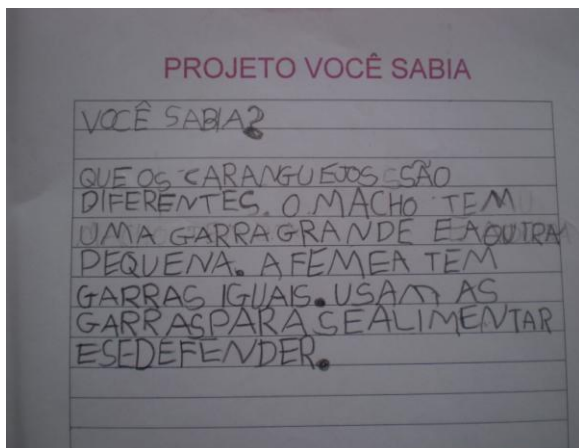 PROJETO VOCÊ SABIA
VOCÊ SABIA?
QUE OS CARANGUEJOS SÃO
DIFERENTES. O MACHO TEM
UMA GARRA GRANDE E A OUTRA
PEQUENA. A FEMEA TEM
GARRAS IGUAIS. USAM AS
GARRAS PARA SE ALIMENTAR
E SE DEFENDER.